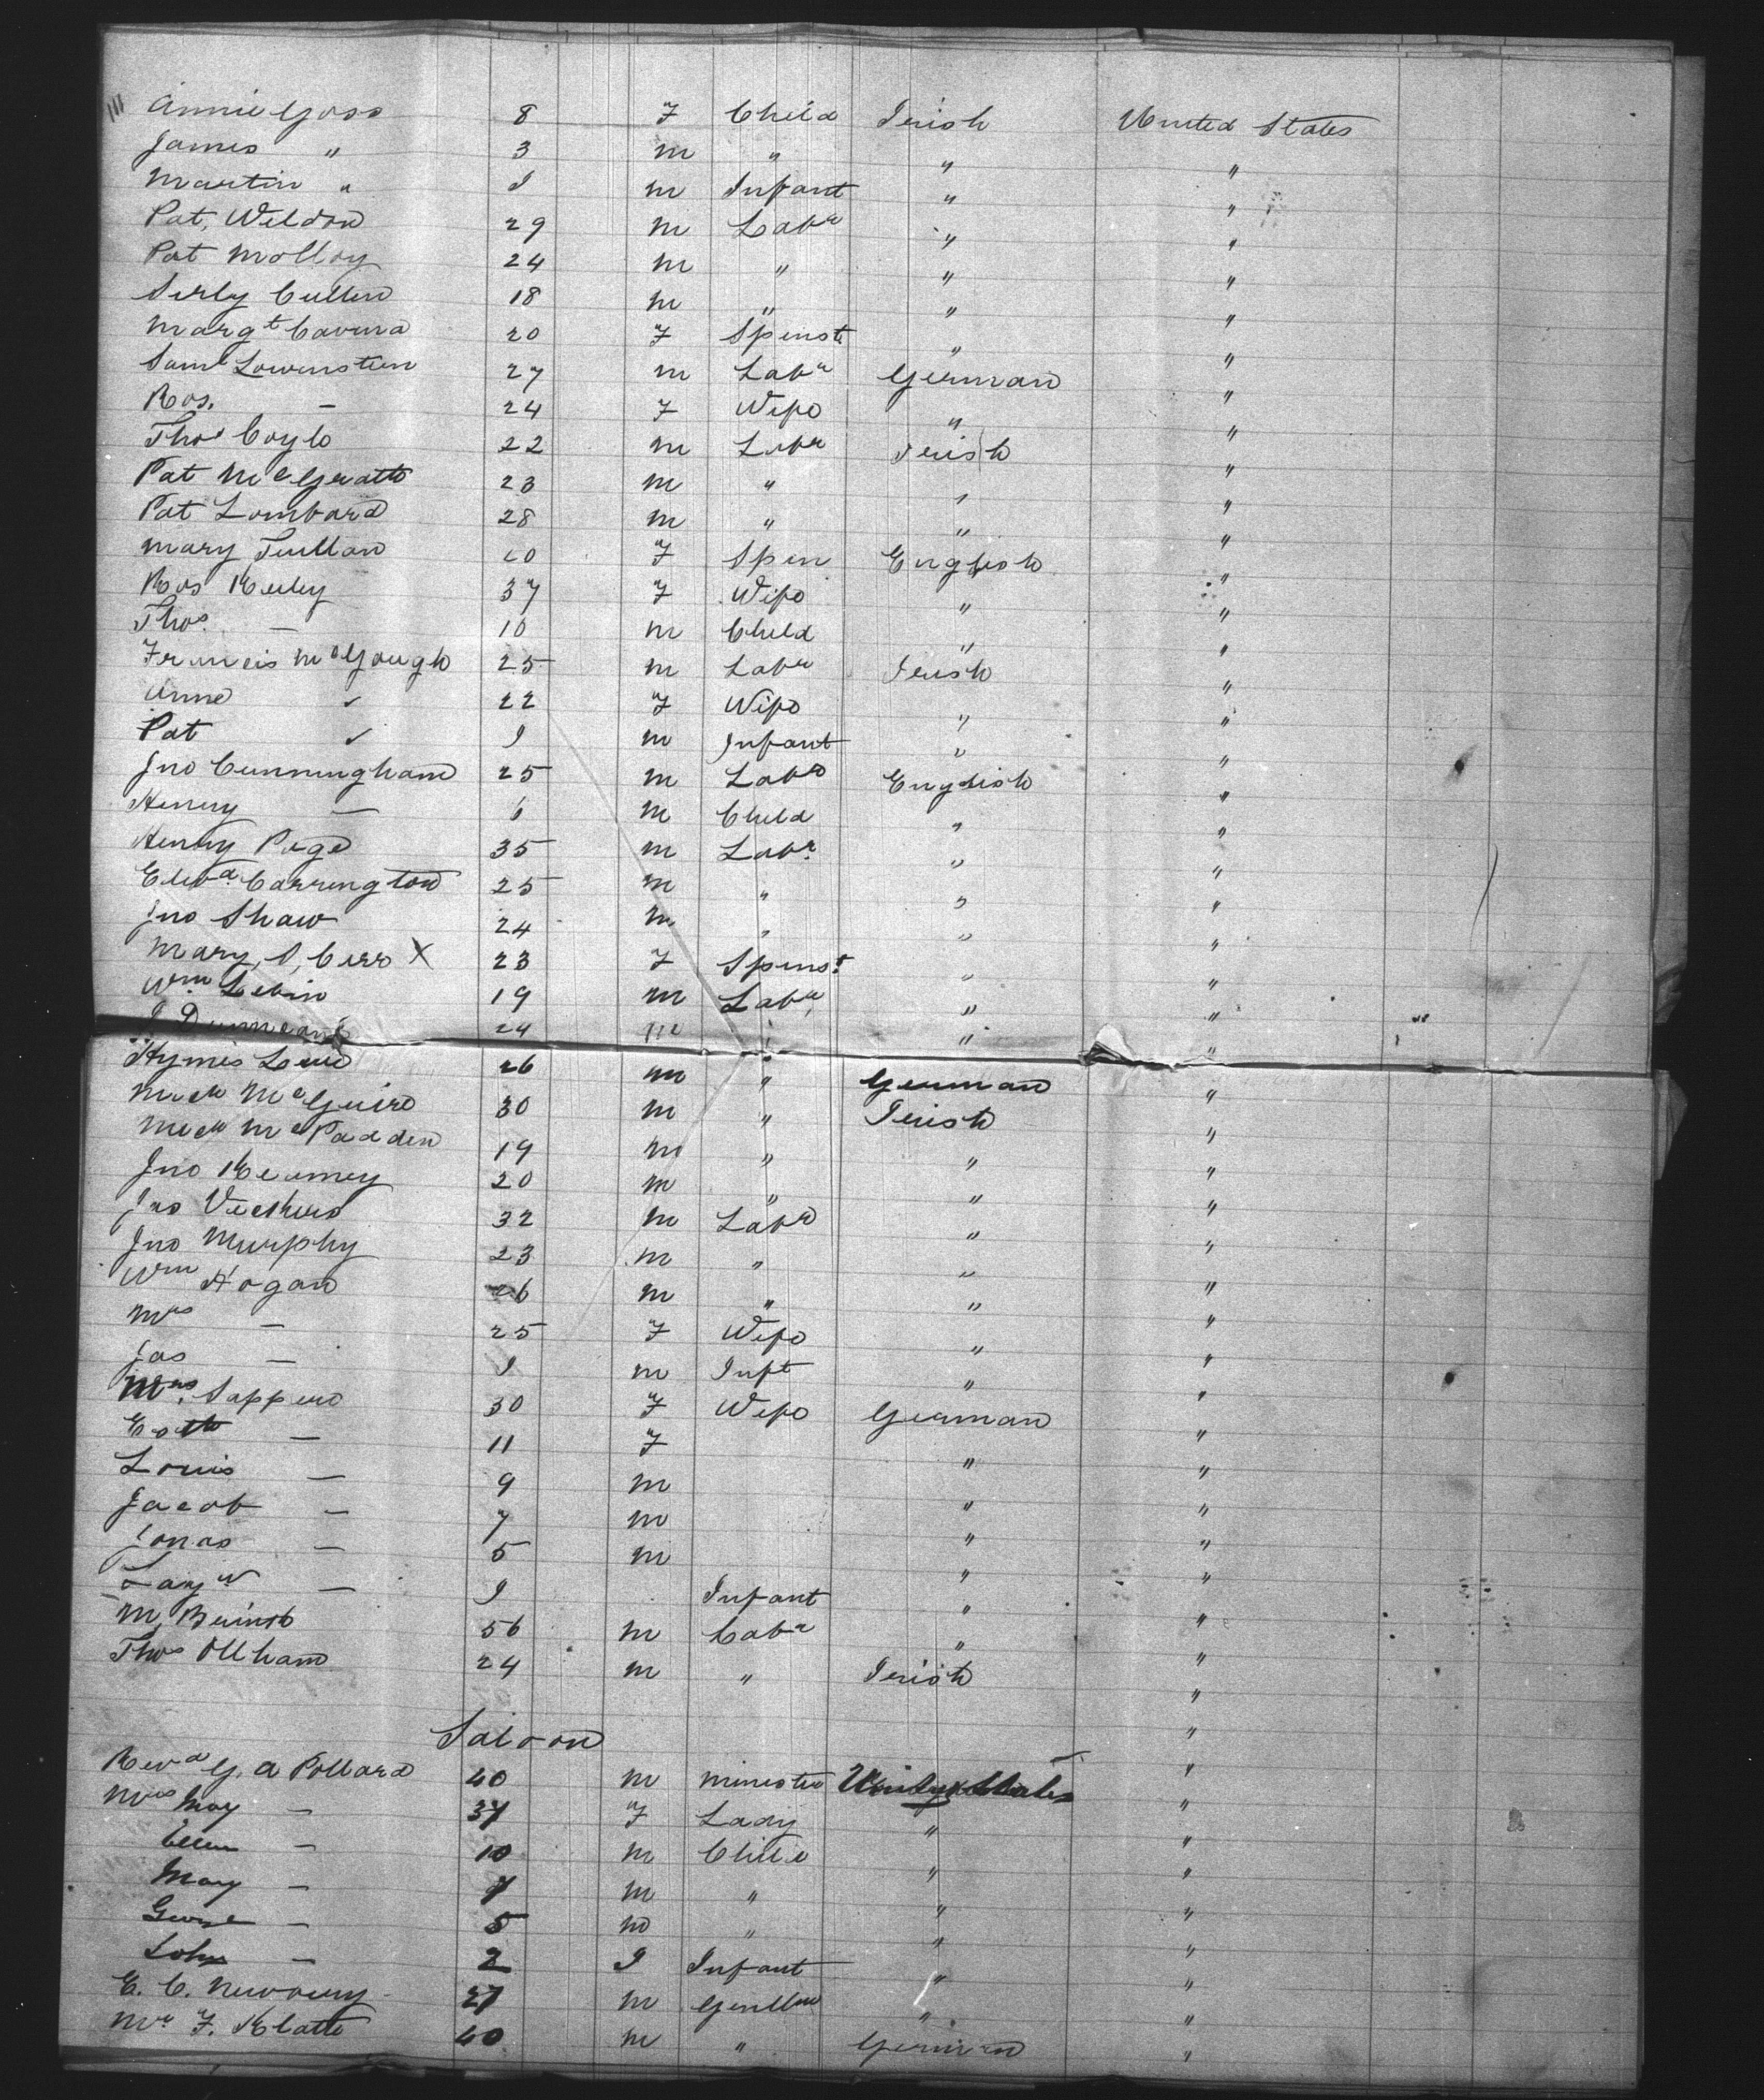 Annie Goss 8 F Child Irish United States
James " 3 m " " "
Martin " I m Infant " "
Pat, Weldon 29 m Labr " "
Pat Molloy 24 m " " "
Cullen 18 m " " "
Margt 20 F Spenst " "
Saml Lowenstein 27 m Labr German "
Ros. — 24 F Wife " "
Thos Coyle 22 m Labr Irish "
Pat McGrath 23 m " " "
Pat Lombard 28 m " " "
Mary F Spen English "
Ros Keley 37 F Wife " "
Thos. — 10 m Child " "
Francis McGough 25 m Labr Irish "
Anne ✓ 22 F Wife " "
Pat ✓ I m Infant " "
Jno Cunningham 25 m Labr English "
Henry — 6 m Child " "
Henry Page 35 m Labr. " "
Edwd. Carrington 25 m " " "
Jno Shaw 24 m " " "
Mary, X 23 F Spenst " "
Wm Lebin 19 m Labr " "
24 m " " "
Hymes 26 m " German "
Mich McGuire 30 m " Irish "
Mich McPadden 19 m " " "
Jno Kearney 20 m " " "
Jas Vickers 32 m Labr " "
Jno Murphy 23 m " " "
Wm Hogan 26 m " " "
Mrs — 25 F Wife " "
Jas — I m Inft " "
Mrs. 30 F Wife German "
— 11 F " "
Louis — 9 m " "
Jacob — 7 m " "
Jonas — 5 m " "
— I Infant " "
M, 56 m Labr " "
Thos Oldham 24 m " Irish "
Saloon "
Revd G. A Pollard 40 m minester United States "
Mrs May — 37 F Lady " "
Ellen — 10 m Child " "
May — 7 m " " "
George — 5 m " " "
John — 2 I Infant " "
E. C. 27 m Gentlm " "
Mr F. Klatte 40 m " German "